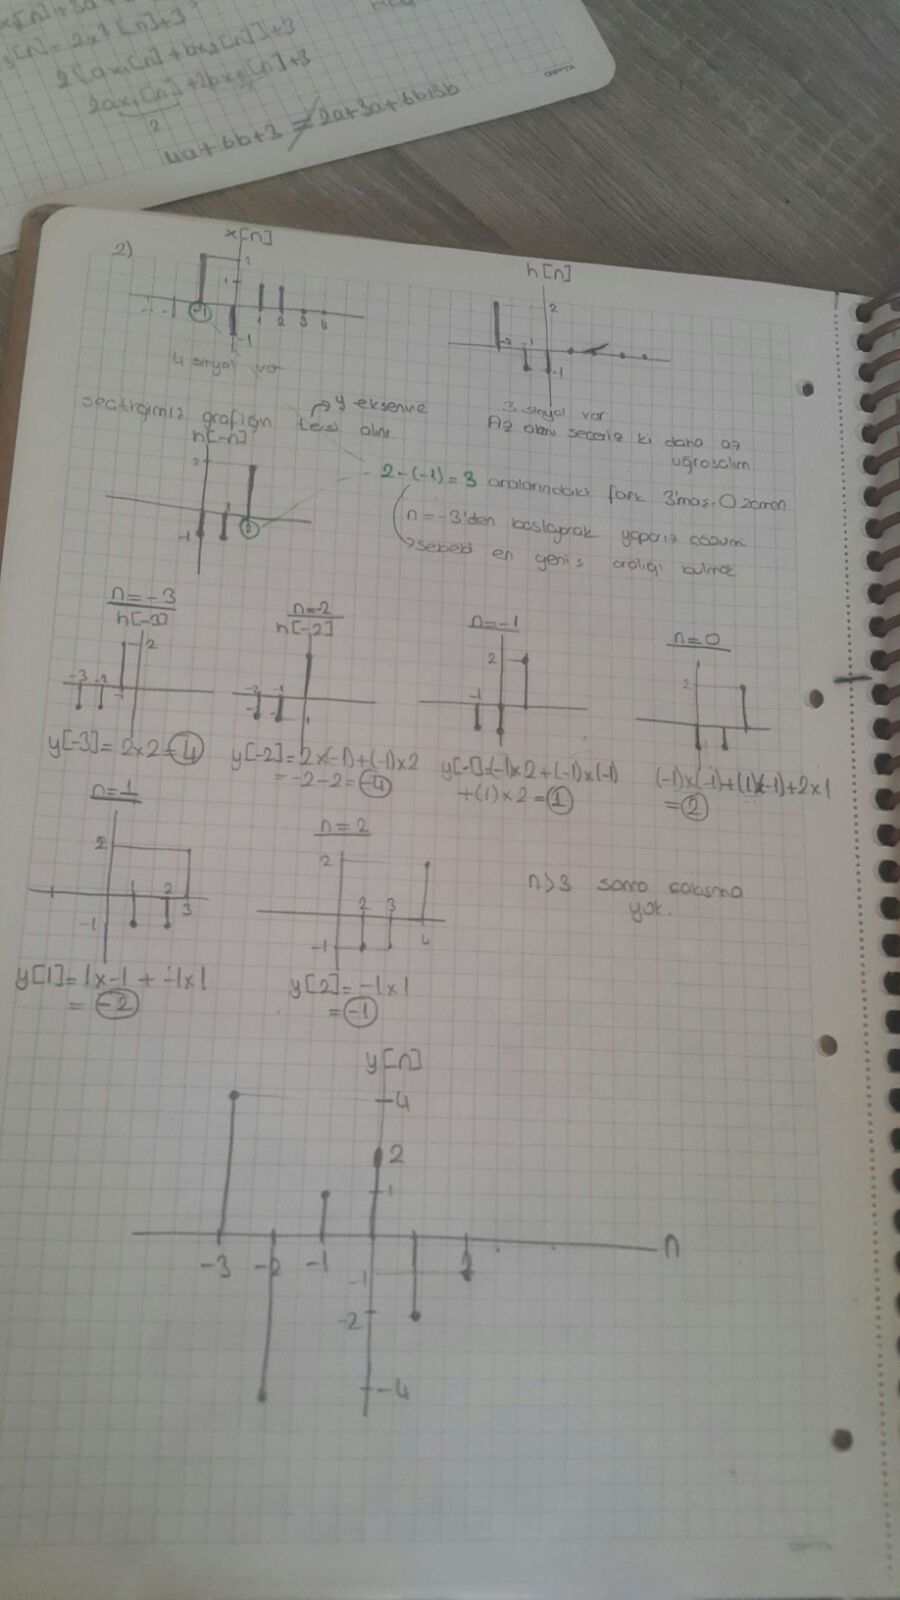 2[ax₁[n]+bx₂[n]]+3
2ax₁[n]+2bx₂[n]+3
2
4a+6b+3≠2a+3a+6b+3b
2)
x[n]
2
1
-1
1 2 3 4
-1
4 sinyal var
h[n]
2
-2 -1
-1
3 sinyal var
Az olanı seçeriz ki daha az
uğraşalım
seçtiğimiz grafiğin tersi alınır
→y eksenine
h[-n]
2
-1
2
2-(-1)=3 aralarındaki fark 3'mas-0 zaman
n=-3'den başlayarak yaparız çözüm
→sebebi en geniş aralığı bulmak
n=-3
h[-3]
2
-3 -2 -1
y[-3]=2x2=4
n=-2
h[-2]
-2 -1
y[-2]=2x(-1)+(-1)x2
=-2-2=-4
n=-1
2
-1
y[-1]=(-1)x2+(-1)x(-1)
+(1)x2=1
n=0
2
(-1)x(-1)+(1)x(-1)+2x1
=2
n=1
2
1 2 3
-1
y[1]=1x-1+-1x1
=-2
n=2
2
2 3 4
-1
y[2]=-1x1
=-1
n>3 sonra çakışma
yok.
y[n]
4
2
1
-3 -2 -1 2 n
-1
-2
-4